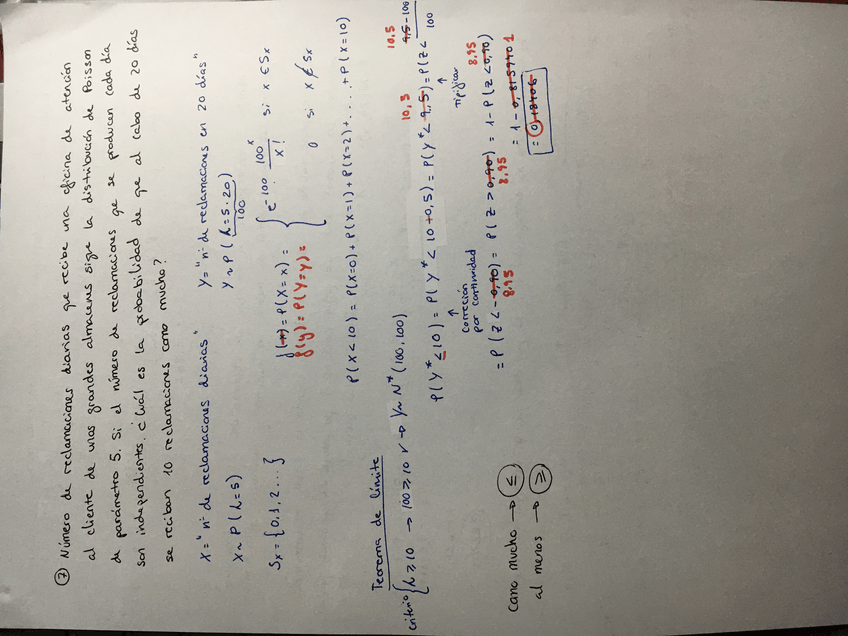 ⑦ Número de reclamaciones diarias que recibe una oficina de atención
al cliente de unos grandes almacenes sigue la distribución de Poisson
de parámetro 5. Si el número de reclamaciones que se producen cada día
son independientes. ¿Cuál es la probabilidad de que al cabo de 20 días
se reciban 10 reclamaciones como mucho?
X = "nº de reclamaciones diarias"
Y = "nº de reclamaciones en 20 días"
X ~ P (λ = 5)
Y ~ P (λ = 5 · 20)
100
Sx = {0, 1, 2 ... }
f(x) = P(X = x) =
f(y) = P(Y = y) =
e^-100 · 100^x / x! si x ∈ Sx
0 si x ∉ Sx
P(X < 10) = P(X=0) + P(X=1) + P(X=2) + .... + P(X=10)
Teorema de límite
criterio { λ ≥ 10 → 100 ≥ 10 ✓ → Y ~ N* (100, 100)
10,5 10,5
P(Y* ≤ 10) = P(Y* < 10 + 0,5) = P(Y* < 9,5) = P(Z < 9,5 - 100 / 100
corrección
por continuidad
tipificar
= P(Z < -0,90) = P(Z > 0,90) = 1 - P(Z < 0,90)
8.95 8.95 8.95
= 1 - 0,8159401
= 0,18406
como mucho → ≤
al menos → ≥